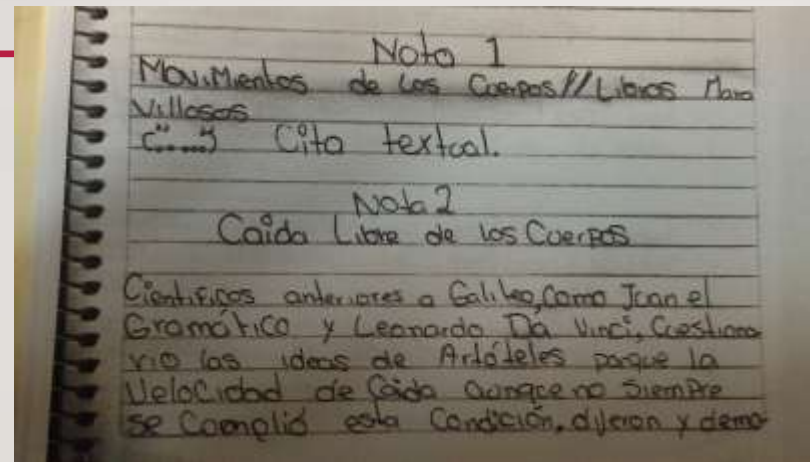 Nota 1
Movimientos de los Cuerpos//Libros Mara
Villosos
(".....") Cita textual.
Nota 2
Caida Libre de los Cuerpos
Cientificos anteriores a Galileo, como Jcan el
Gramático y Leonardo Da Vinci, Cuestiona
rio las ideas de Aristóteles porque la
Velocidad de Caida aunque no siempre
se Complió esta Condición, dijeron y demo